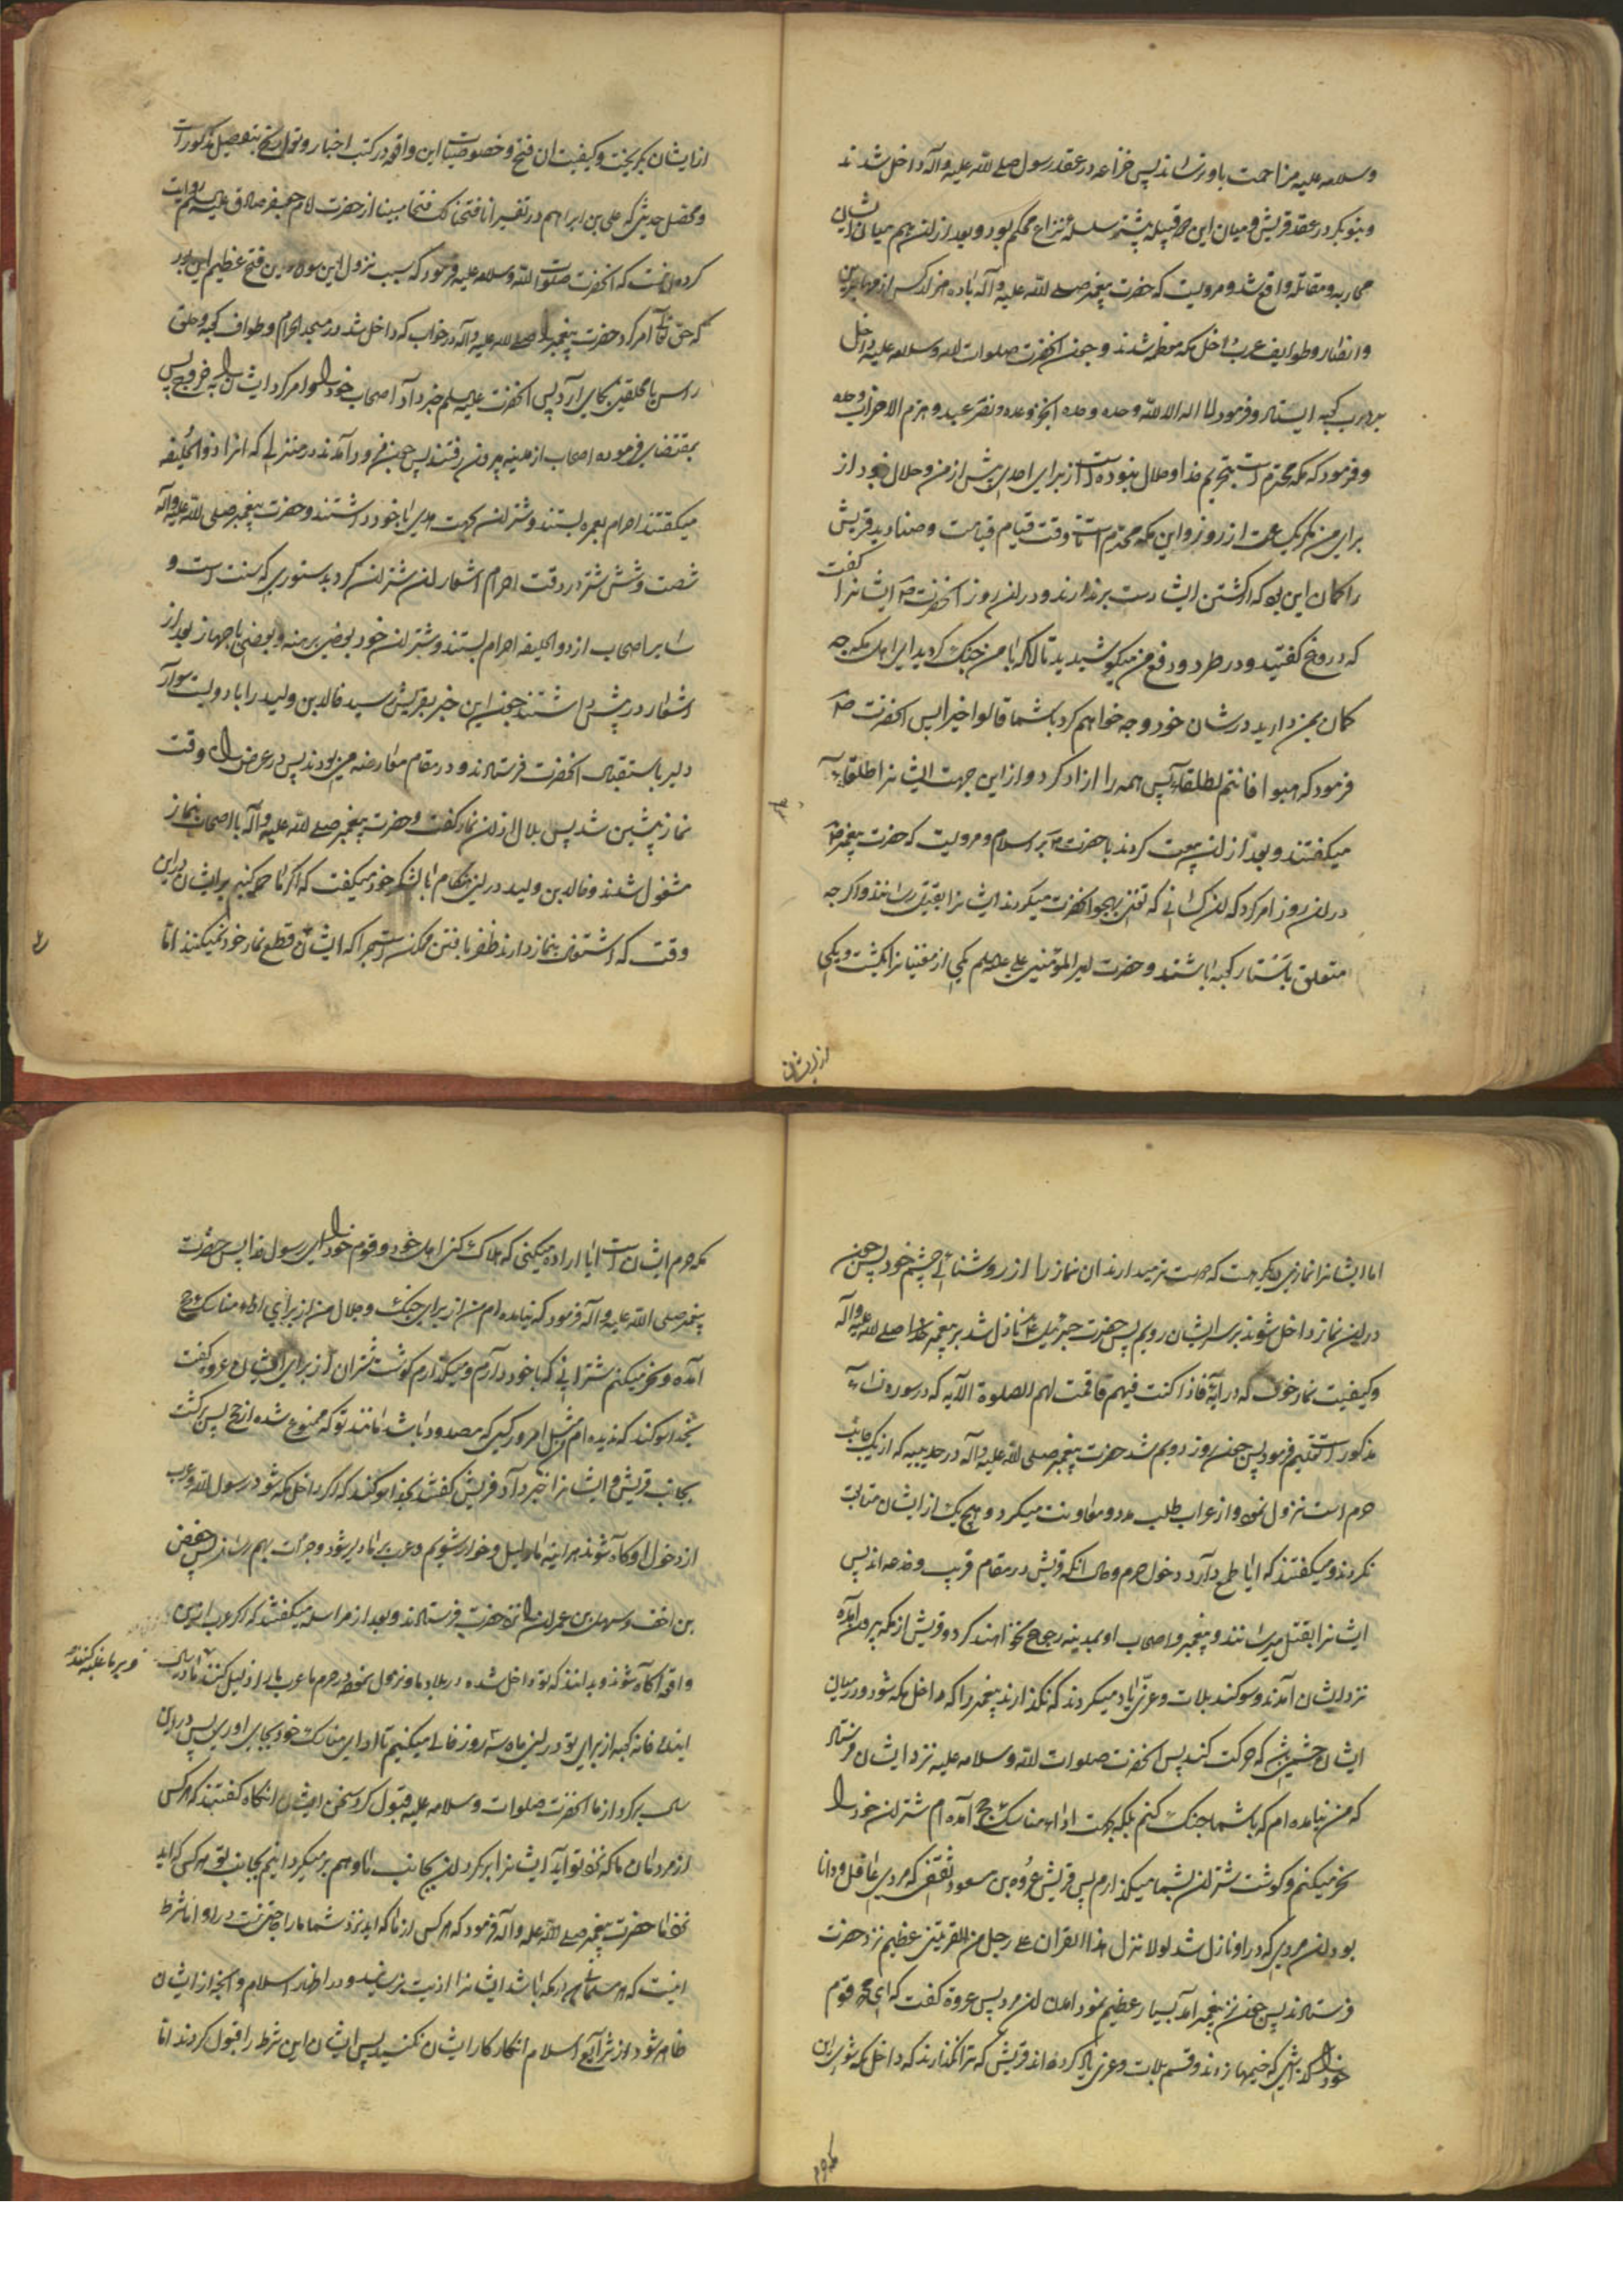 وسلامه علیه مزاحمت باو نرسانند پس خزاعه در عقد رسول صلی الله علیه وآله داخل شدند
وبنوبکر در عقد قریش ومیان این دو قبیله پیشتر سلسله نزاع محکم بود وبعد از ان هم میان ایشان
محاربه ومقاتله واقع شد ومرویست که حضرت پیغمبر صلی الله علیه وآله با ده هزار کس از مهاجرین
وانصار وطوایف عرب داخل مکه معظمه شدند وچون انحضرت صلوات الله وسلامه علیه داخل
بر در کعبه ایستاد وفرمود لا اله الا الله وحده وحده انجز وعده ونصر عبده وهزم الاحزاب وحده
وفرمود که مکه محترم است بتحریم خدا وحلال نبوده است از برای احدی پیش از من وحلال نبود از
برای من مگر یک ساعت از روز واین مکه محترم است تا وقت قیام قیامت وصنادید قریش
را کمان این بود که از کشتن ایشان دست برندارند ودر ان روز انحضرت ص ایشانرا گفت
که دروغ گفتید ودر طرد ودفع من میکوشیدید تا انکه با من جنک کردید ای اهل مکه چه
کمان بمن دارید در شان خود وچه خواهم کرد با شما قالوا خیرا پس انحضرت ص
فرمود که اذهبوا فانتم الطلقاء پس همه را ازاد کرد واز این جهت ایشانرا طلقاء
میکفتند وبعد از ان بیعت کردند با حضرت ص بر اسلام ومرویست که حضرت پیغمبر ص
در ان روز امر کرد که ان کسانی که تغنی بهجو انحضرت میکردند ایشانرا بقتل رسانند واکر چه
متعلق باستار کعبه باشند وحضرت امیر المؤمنین علی علیه السلم یکی از مغنیانرا بکشت ویکی
از ایشان
از ایشان بکریخت وکیفیت ان فتح وخصوصیات این واقعه در کتب اخبار وتواریخ بتفصیل مذکور است
ومحصل حدیثی که علی بن ابراهیم در تفسیر انا فتحنا لک فتحا مبینا از حضرت امام جعفر صادق علیه السلم روایت
کرده انست که انحضرت صلوات الله وسلامه علیه فرمود که سبب نزول این سوره واین فتح عظیم این بود
که حق تعالی امر کرد حضرت پیغمبر را صلی الله علیه وآله در خواب که داخل شد در مسجد الحرام وطواف کعبه وحلق
راس با محلقین بجای ارد پس انحضرت علیه السلم خبر داد اصحاب خود را وامر کرد ایشان را بخروج پس
بمقتضای فرموده اصحاب از مدینه بیرون رفتند پس چون فرود آمدند در منزلی که انرا ذو الحلیفه
میکفتند احرام بعمره بستند وشتران بجهت هدی با خود داشتند وحضرت پیغمبر صلی الله علیه وآله
شصت وشش شتر در وقت احرام اشعار ان شتران کرد بدستوری که سنت است و
سایر اصحاب از ذو الحلیفه احرام بستند وشتران خود بعضی برهنه وبعضی با جهاز بعد از
اشعار در پیش داشتند چون این خبر بقریش رسید خالد بن ولید را با دویست سوار
دلیر باستقبال انحضرت فرستادند ودر مقام معارضه می بودند پس در عرض راه وقت
نماز پیشین شد پس بلال اذان نماز کفت وحضرت پیغمبر صلی الله علیه وآله با اصحاب بنماز
مشغول شدند وخالد بن ولید در این هنکام با لشکر خود میکفت که اکر ما حمله کنیم بر ایشان در این
وقت که اشتغال بنماز دارند ظفر یافتن ممکن است چرا که ایشان قطع نماز خود نمیکنند اما
اما ایشانرا نماز دیکر هست که دوست تر میدارند ان نماز را از روشنائی چشم خود پس چون
در این نماز داخل شوند بر سر ایشان رویم پس حضرت جبرئیل ع نازل شد بر پیغمبر خدا صلی الله علیه وآله
وکیفیت نماز خوف که در آیه فاذا کنت فیهم فاقمت لهم الصلوة الآیه که در سوره نساء
مذکور است تعلیم فرمود پس چون روز دویم شد حضرت پیغمبر صلی الله علیه وآله در حدیبیه که از یک جانب
حرم است نزول نموده واز اعراب طلب مدد ومعاونت میکرد وهیچ یک از ایشان متابعت
نکردند ومیکفتند که ایا طمع دارد دخول حرم وحال انکه قریش در مقام فریب وخدعه اند پس
ایشانرا بقتل میرسانند وپیغمبر واصحاب او بمدینه رجوع نخواهند کرد وقریش از مکه بیرون آمده
نزد ایشان آمدند وسوکند بلات وعزی یاد میکردند که نکذارند پیغمبر را که داخل مکه شود ودر میان
ایشان چشمی باشد که حرکت کند پس انحضرت صلوات الله وسلامه علیه نزد ایشان فرستاد
که من نیامده ام که با شما جنک کنم بلکه بجهت اداء مناسک حج آمده ام شتران خود را
نحر میکنم وکوشت شتران بشما میکذارم پس قریش عروه بن مسعود ثقفی که مردی عاقل ودانا
بود وان مردی که در او نازل شد لولا نزل هذا القران علی رجل من القریتین عظیم نزد حضرت
فرستادند پس چون نزد پیغمبر آمد بسیار عظیم نمود امدن ان مرد پس عروة کفت که ای محمد قوم
خود را کذاشتی که خیمها زده اند وقسم بلات وعزی یاد کرده اند قریش که ترا نکذارند که داخل مکه شوی این
مکه حرم
مکه حرم ایشان است ایا اراده میکنی که هلاک کنی اهل خود وقوم خود را ای رسول خدا پس حضرت
پیغمبر صلی الله علیه وآله فرمود که نیامده ام من از برای جنک وجدال من از برای اداء مناسک حج
آمده ونحر میکنم شترانی که با خود دارم ومیکذارم کوشت شتران از برای ایشان عروه کفت
بخدا سوکند که ندیده ام مثل امروز کسی که مصدود باشد مانند تو که ممنوع شده از حج پس برکشت
بجانب قریش وایشانرا خبر داد قریش کفتند بخدا سوکند که اکر داخل مکه شود رسول الله وعرب
از دخول او آکاه شوند هر آینه ما ذلیل وخوار شویم وعرب بر ما دلیر شود وجرات بهم رسانند پس حفص
بن احنف وسهیل بن عمرو را نزد حضرت فرستادند وبعد از مراسله میکفتند که اکر عرب از این
واقعه آکاه شوند وبدانند که تو داخل شده در بلاد ما ونزول نموده در حرم ما عرب ما را ذلیل کنند
وبر ما غلبه کنند
اینده خانه کعبه از برای تو در این ماه سه روز خالی میکنیم تا ادای مناسک خود بجای اوری پس در این
سال برکرد از ما انحضرت صلوات وسلامه علیه قبول کرد سخن ایشان انکاه کفتند که هر کس
از مردمان ما که نزد تو آید ایشانرا برکردان بجانب ما وما هم بر میکردانیم بجانب تو هر کس که آید
نزد ما حضرت پیغمبر صلی الله علیه وآله فرمود که هر کس از ما که اید نزد شما ما را حاجتی نیست در او اما شرط
اینست که هر مسلمان در مکه باشد ایشانرا اذیت نرسانید ودر اظهار اسلام وانچه از ایشان
ظاهر شود از شرایع اسلام انکار کار ایشان نکنید پس ایشان این شرط را قبول کردند اما